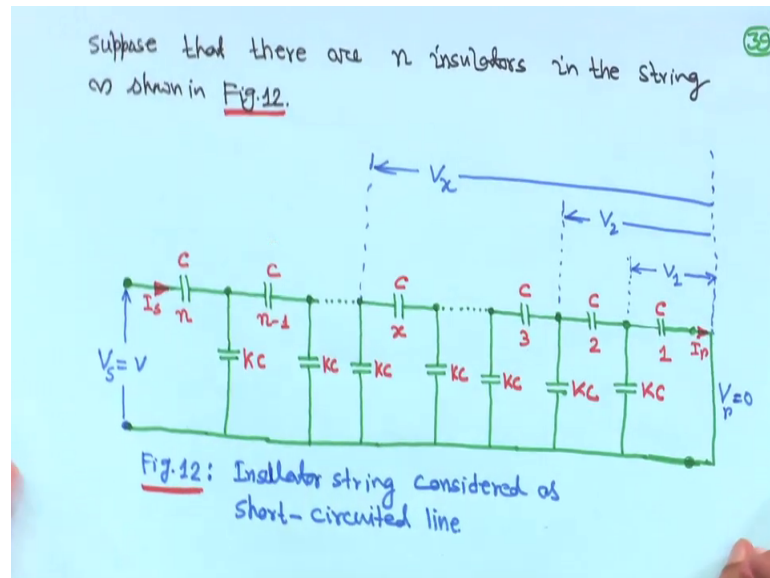 38
Suppose that there are n insulators in the string
as shown in Fig.12.
Vx
V2
V1
C
C
C
C
C
C
Is
n
n-1
x
3
2
1
Ir
Vs = V
KC
KC
KC
KC
KC
KC
KC
Vr = 0
Fig.12: Insulator string considered as
short-circuited line